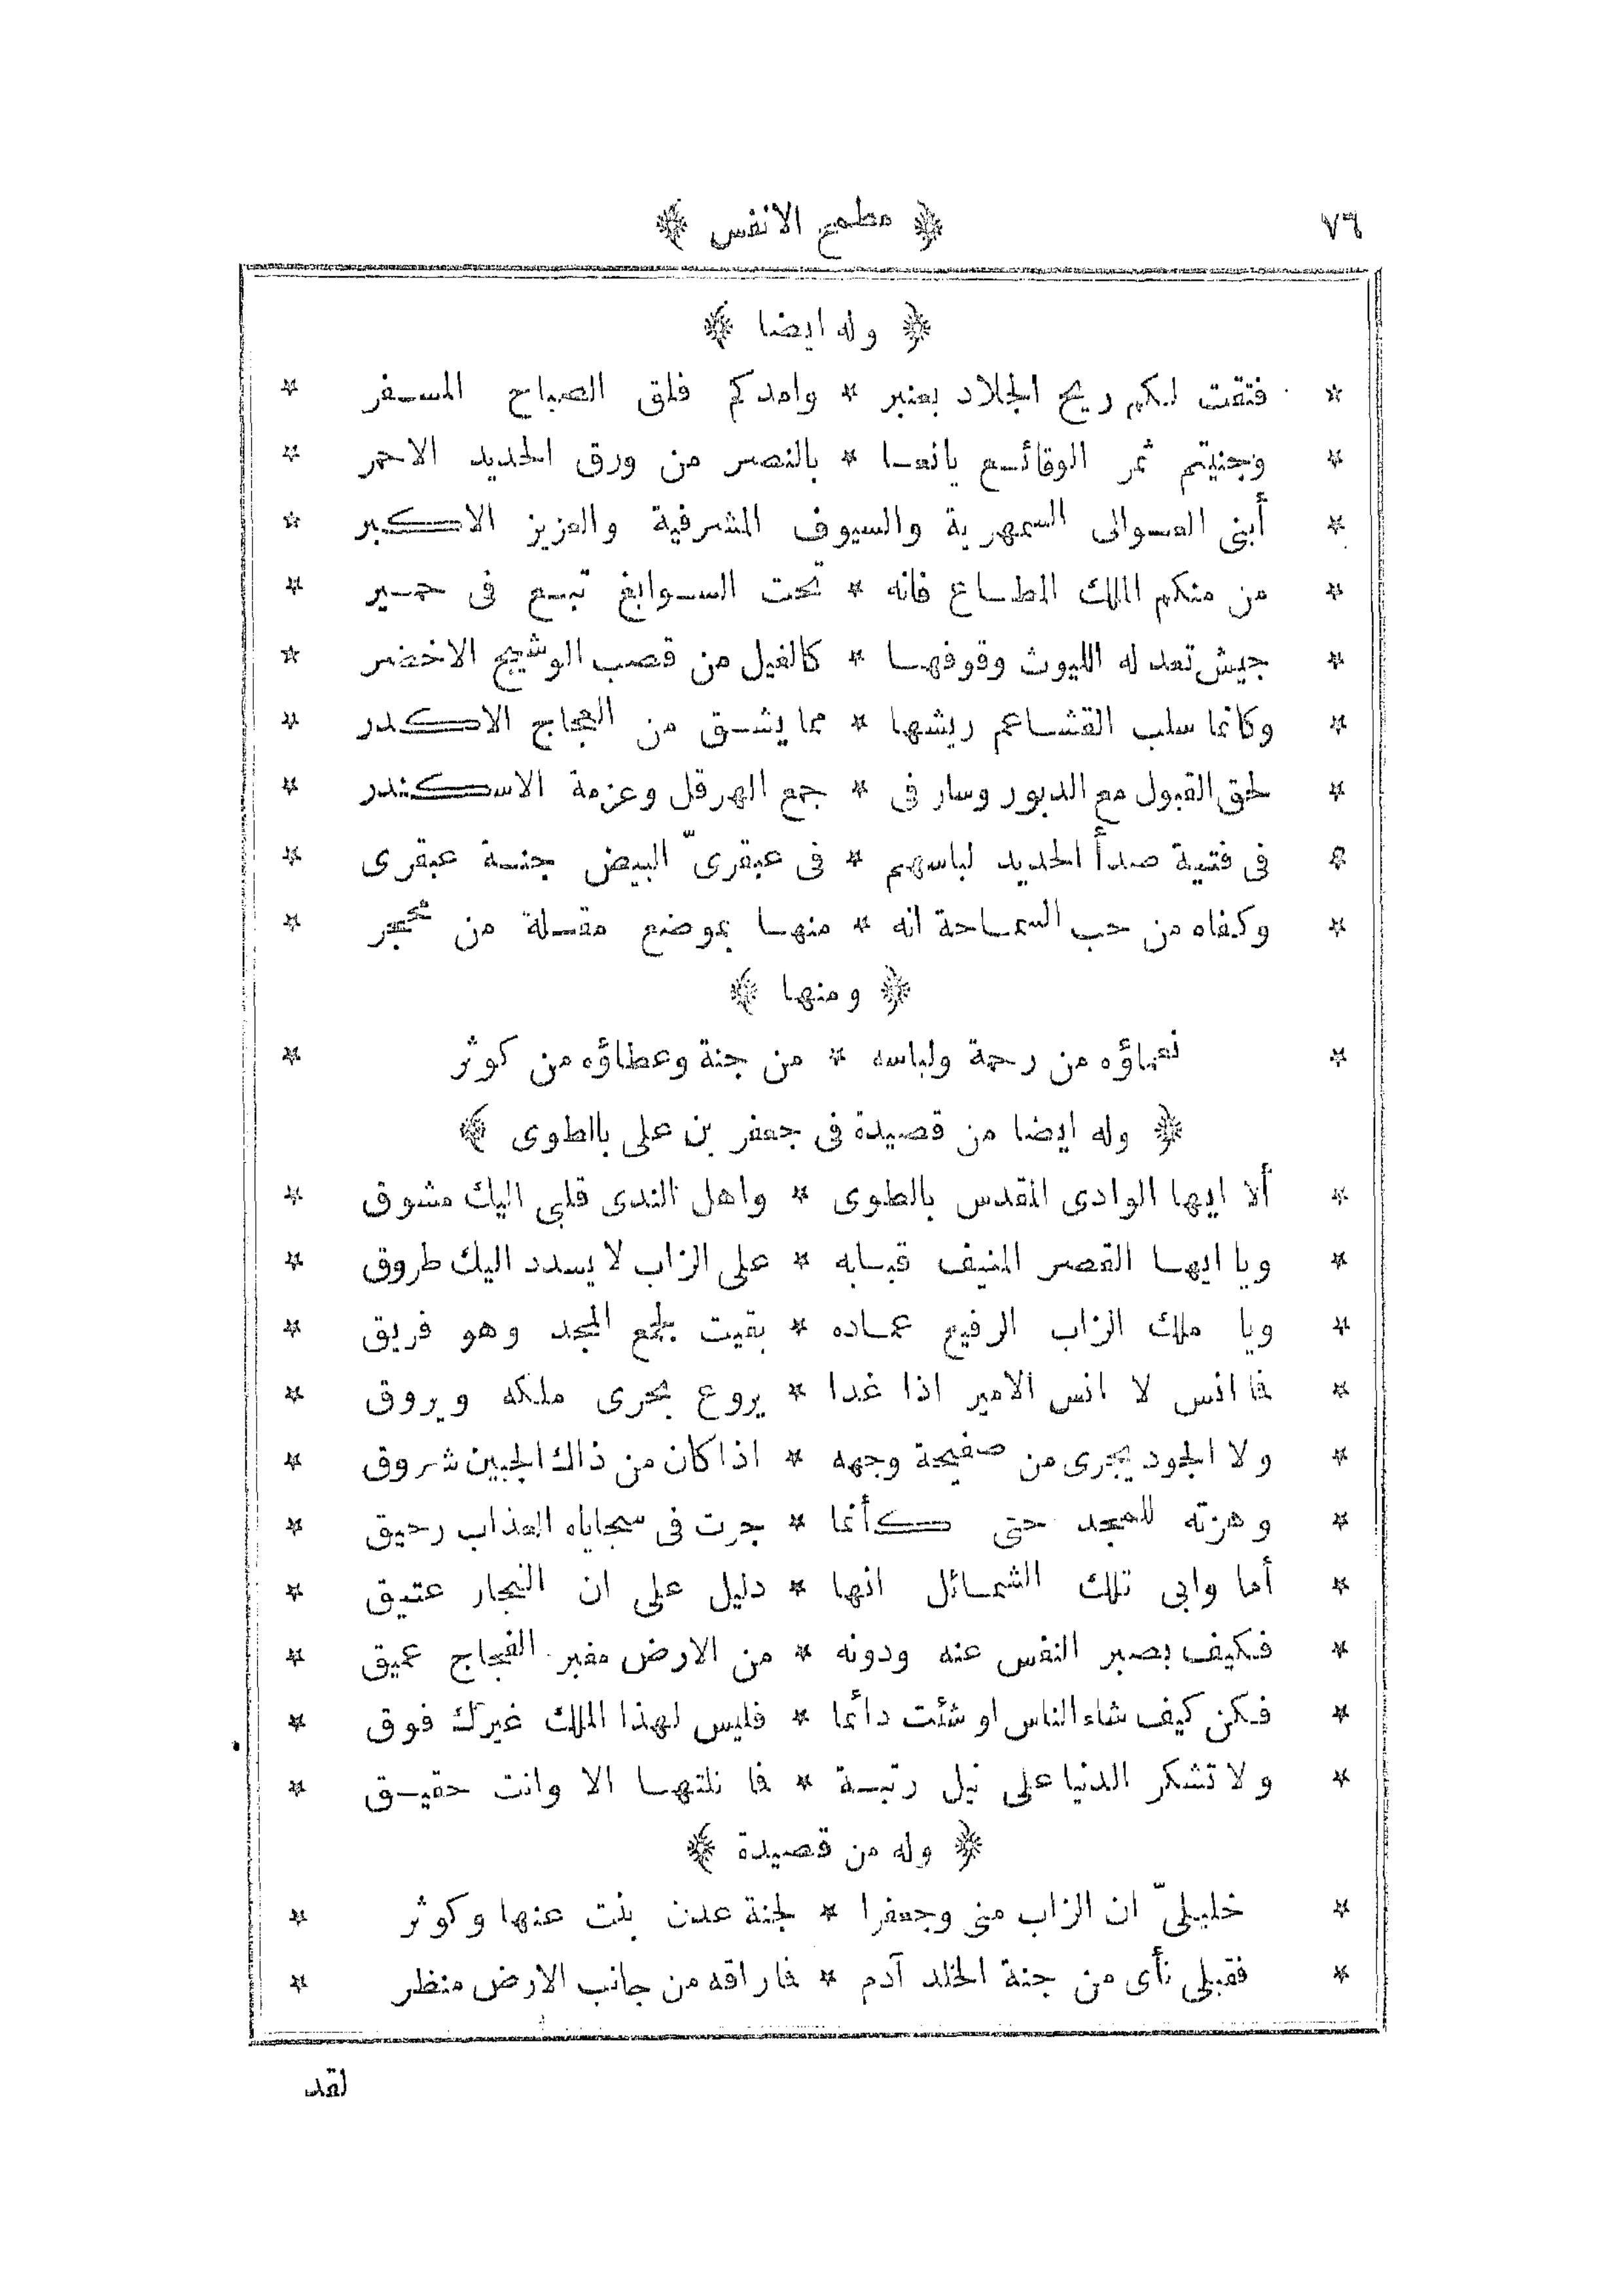 ٧٦
﴿ مطمح الانفس ﴾
﴿ وله ايضا ﴾
* فتقت لكم ريح الجلاد بعنبر * وامدكم فلق الصباح المسفر *
* وجنيتم ثمر الوقائع يانعا * بالنصر من ورق الحديد الاحمر *
* أبنى العوالى السمهرية والسيوف المشرفية والعزيز الاكبر *
* من منكم الملك المطاع فانه * تحت السوابغ تبع فى حمير *
* جيش تعد له الليوث وقوفها * كالغيل من قصب الوشيج الاخضر *
* وكانما سلب القشاعم ريشها * مما يشق من العجاج الاكدر *
* لحق القبول مع الدبور وسار فى * جمع الهرقل وعزمة الاسكندر *
* فى فتية صدأ الحديد لباسهم * فى عبقرىّ البيض جنة عبقرى *
* وكفاه من حب السماحة انه * منها بموضع مقلة من محجر *
﴿ ومنها ﴾
* نعماؤه من رحمة ولباسه * من جنة وعطاؤه من كوثر *
﴿ وله ايضا من قصيدة فى جعفر بن على بالطوى ﴾
* ألا ايها الوادى المقدس بالطوى * واهل الندى قلبى اليك مشوق *
* ويا ايها القصر المنيف قبابه * على الزاب لا يسدد اليك طروق *
* ويا ملك الزاب الرفيع عماده * بقيت لجمع المجد وهو فريق *
* فا انس لا انس الامير اذا غدا * يروع بحرى ملكه ويروق *
* ولا الجود يجرى من صفيحة وجهه * اذا كان من ذاك الجبين شروق *
* وهزته للمجد حتى كأنما * جرت فى سجاياه العذاب رحيق *
* أما وابى تلك الشمائل انها * دليل على ان النجار عتيق *
* فكيف بصبر النفس عنه ودونه * من الارض مغبر الفجاج عميق *
* فكن كيف شاء الناس او شئت دائما * فليس لهذا الملك غيرك فوق *
* ولا تشكر الدنيا على نيل رتبة * فا نلتها الا وانت حقيق *
﴿ وله من قصيدة ﴾
* خليلىّ ان الزاب منى وجعفرا * لجنة عدن بنت عنها وكوثر *
* فقبلى نأى من جنة الخلد آدم * فا راقه من جانب الارض منظر *
لقد